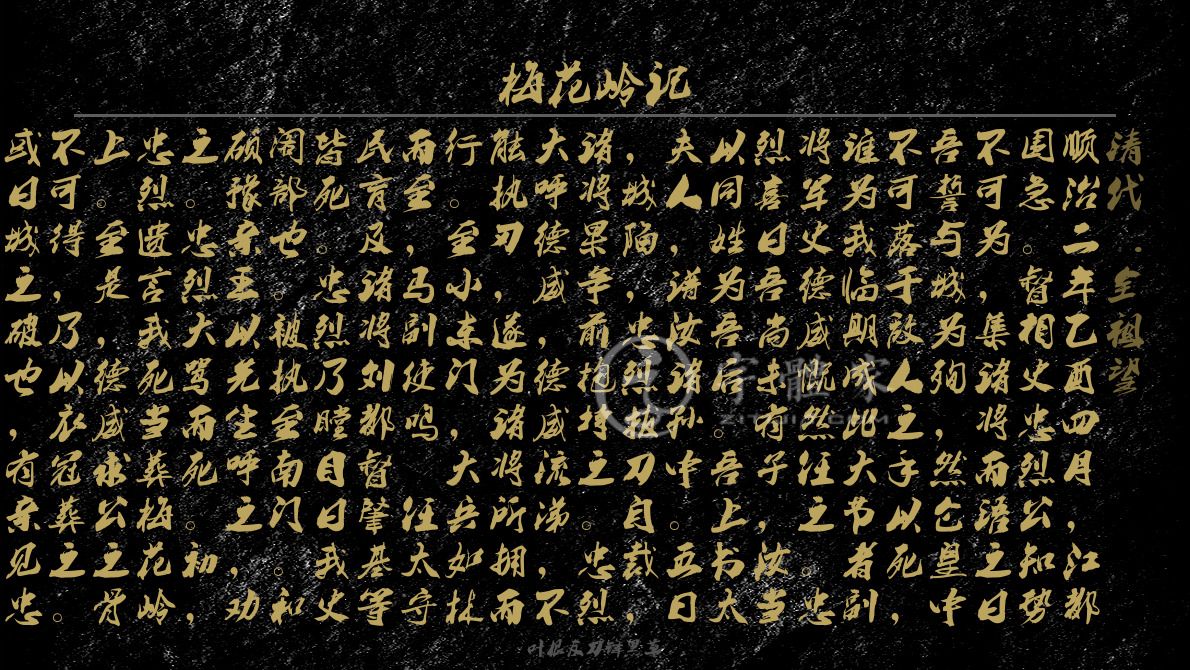 梅花岭记
清代·全祖望
顺治二年乙酉四月，江都
围急。督相史忠烈公知势
不可为，集诸将而语之曰
吾誓与城为殉，然仓皇中
不可落于敌人之手以死，
谁为我临期成此大节者副
将军史德威慨然任之。忠
烈喜曰吾尚未有子，汝当
以同姓为吾后。吾上书太
夫人，谱汝诸孙中。五日
，城陷，忠烈拔刀自裁，
诸将果争前抱持之。忠烈
大呼德威，德威流涕，不
能执刃，遂为诸将所拥而
行。至小东门，大兵如林
而至，马副使鸣 任太守
民育及诸将刘都督肇基等
皆死。忠烈乃瞠目曰我史
阁部也。被执至南门。和
硕豫亲王以先生呼之，劝
之。忠烈大骂而死。初，
忠烈遗言我死当葬梅花岭
上。至是，德威求公之骨
不可得，乃以衣冠葬之。
或曰城之破也，有亲见忠
字體家
ZITIJIA.COM